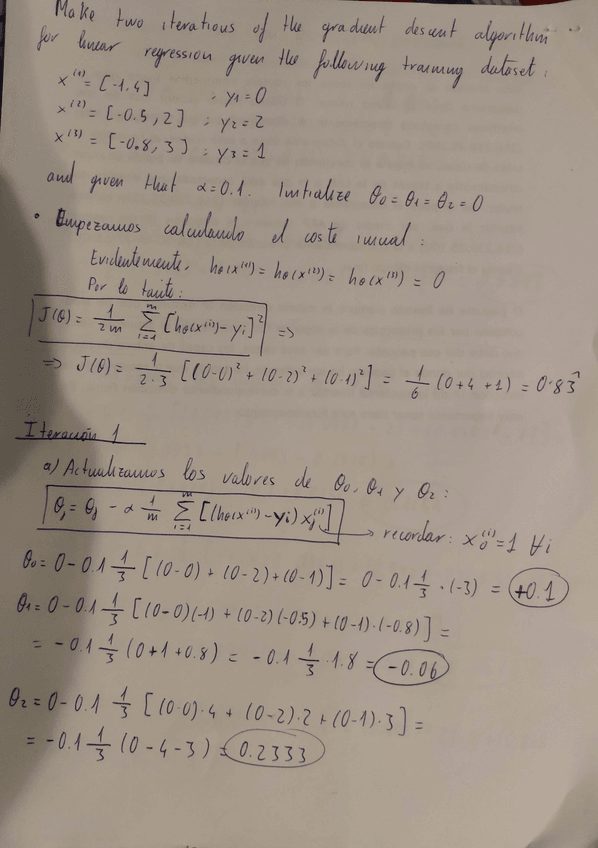 Make two iterations of the gradient descent algorithm
for linear regression given the following training dataset:
x⁽¹⁾ = [-1, 4] ; y₁ = 0
x⁽²⁾ = [-0.5, 2] ; y₂ = 2
x⁽³⁾ = [-0.8, 3] ; y₃ = 1
and given that α = 0.1. Initialize θ₀ = θ₁ = θ₂ = 0
• Empezamos calculando el coste inicial:
Evidentemente, hθ(x⁽¹⁾) = hθ(x⁽²⁾) = hθ(x⁽³⁾) = 0
Por lo tanto:
J(θ) = 1/2m Σᵢ₌₁ᵐ [hθ(x⁽ⁱ⁾) - yᵢ]² =>
=> J(θ) = 1/2·3 [(0-0)² + (0-2)² + (0-1)²] = 1/6 (0+4+1) = 0'83̂
Iteración 1
a) Actualizamos los valores de θ₀, θ₁ y θ₂:
θⱼ = θⱼ - α 1/m Σᵢ₌₁ᵐ [(hθ(x⁽ⁱ⁾) - yᵢ) xⱼ⁽ⁱ⁾] → recordar: x₀⁽ⁱ⁾ = 1 ∀i
θ₀ = 0 - 0.1 1/3 [(0-0) + (0-2) + (0-1)] = 0 - 0.1 1/3 · (-3) = +0.1
θ₁ = 0 - 0.1 1/3 [(0-0)(-1) + (0-2)(-0.5) + (0-1)·(-0.8)] =
= -0.1 1/3 (0+1+0.8) = -0.1 1/3 · 1.8 = -0.06
θ₂ = 0 - 0.1 1/3 [(0-0)·4 + (0-2)·2 + (0-1)·3] =
= -0.1 1/3 (0-4-3) = 0.2333